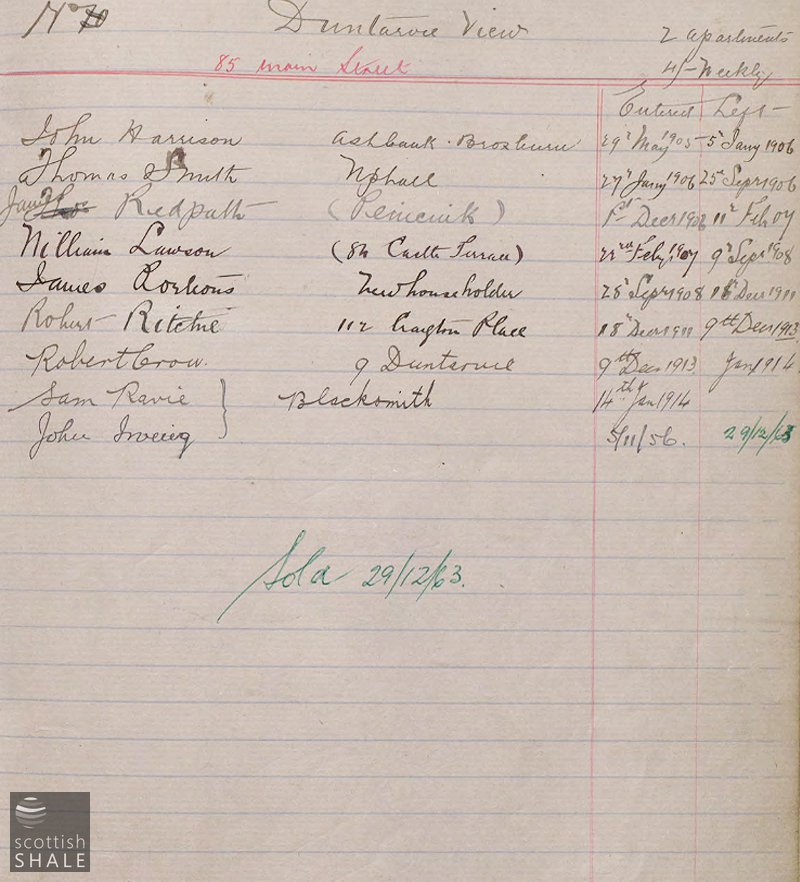 No 70 Duntarvie View 2 apartments
85 Main Street 4/- Weekly
Entered Left
John Harrison Ashbank. Broxburn 29th May 1905 5th Jany 1906
Thomas Smith Uphall 27th Jany 1906 25th Sepr 1906
James Redpath (Penicuik) 1st Decr 1906 11th Feby 07
William Lawson (84 Castle Terrace) 22nd Feby 1907 9th Sepr 1908
James Newhouseholder 28th Sepr 1908 18th Decr 1911
Robert Ritchie 112 Craigton Place 18th Decr 1911 9th Decr 1913
Robert Crow. 9 Duntarvie 9th Dec 1913 Jany 1914
Sam Ravie } Blacksmith 14th Jan 1914
John 5/11/56. 29/12/63
Sold 29/12/63.
scottish
SHALE